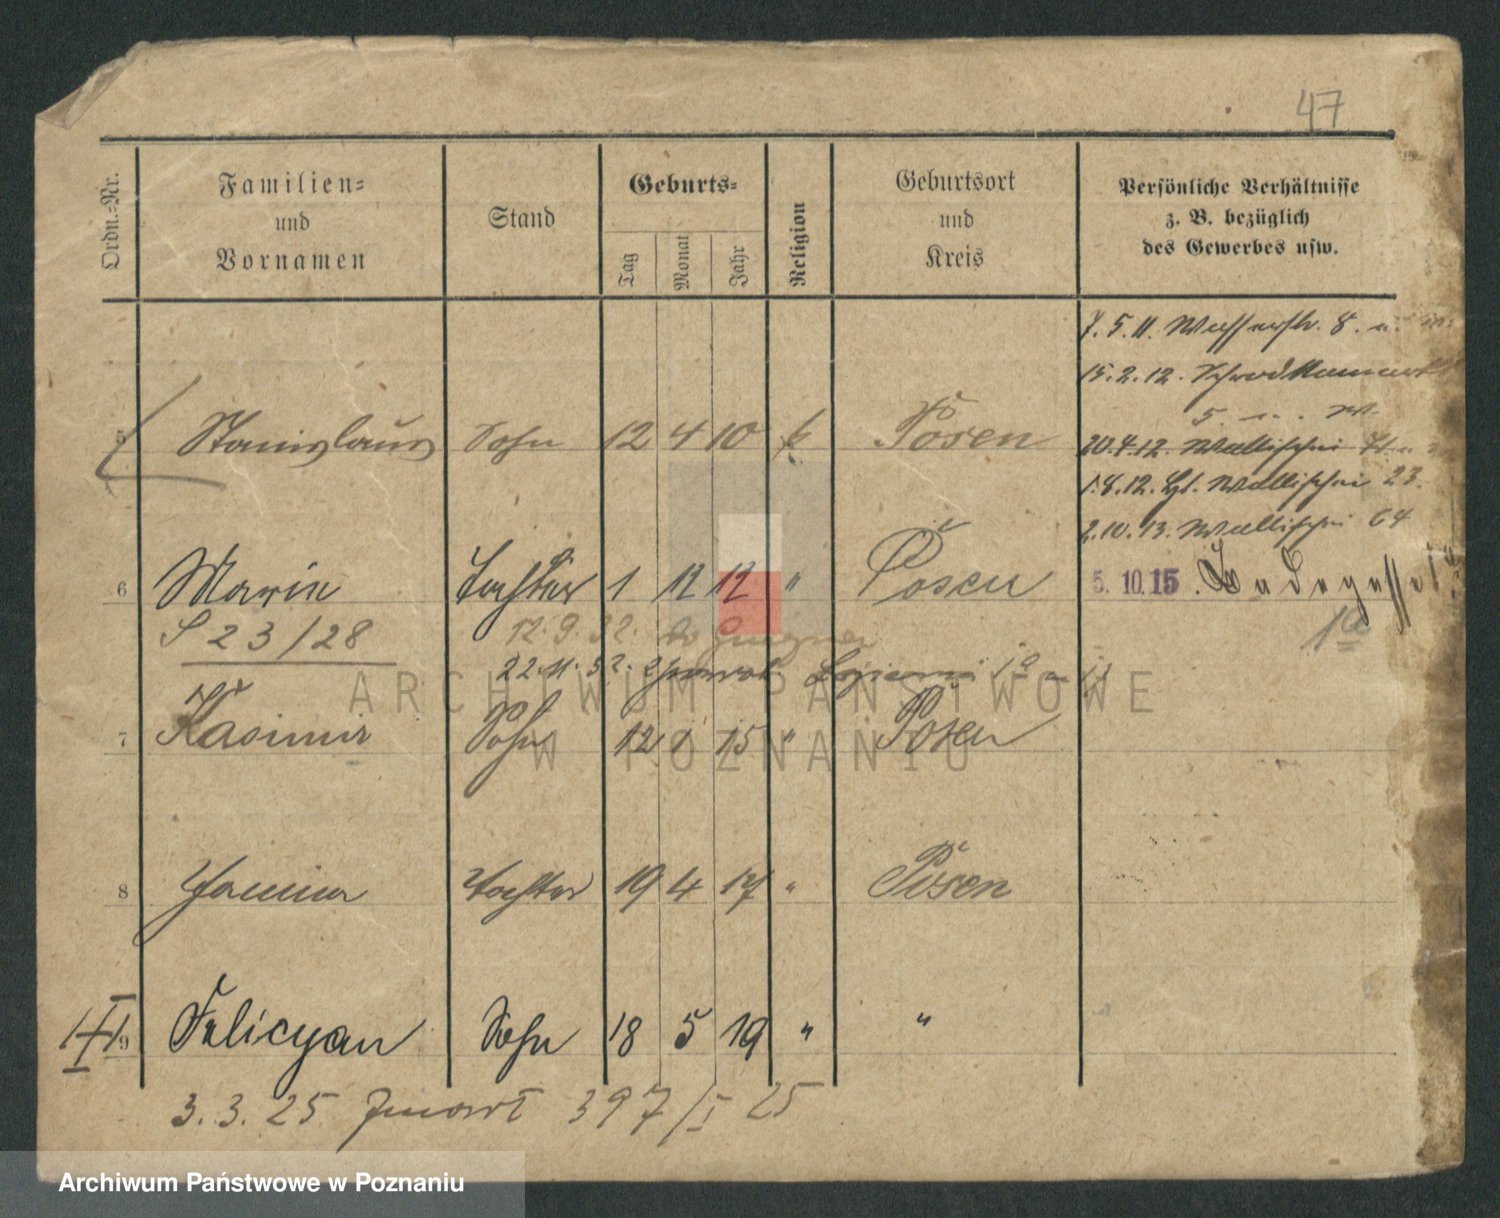 47
Ordn.-Nr.
Familien-
und
Vornamen
Stand
Geburts-
Tag
Monat
Jahr
Religion
Geburtsort
und
Kreis
Persönliche Verhältnisse
z. B. bezüglich
des Gewerbes usw.
7.5.11. Wasserstr. 8.
15.2.12.
5
5 Stanislaus Sohn 12 4 10 k Posen
20.4.12. Wallischei
1.8.12. Wallischei 23.
2.10.13. Wallischei 64
6 Marie Tochter 1 12 12 " Posen
5.10.15.
1a
S 23/28
12.9.32.
22.11.32.
7 Kasimir Sohn 12 1 15 " Posen
8 Janina Tochter 19 4 17 " Posen
9 Felicyan Sohn 18 5 19 " "
3.3.25 zmarł 397/I 25
ARCHIWUM PAŃSTWOWE
W POZNANIU
Archiwum Państwowe w Poznaniu